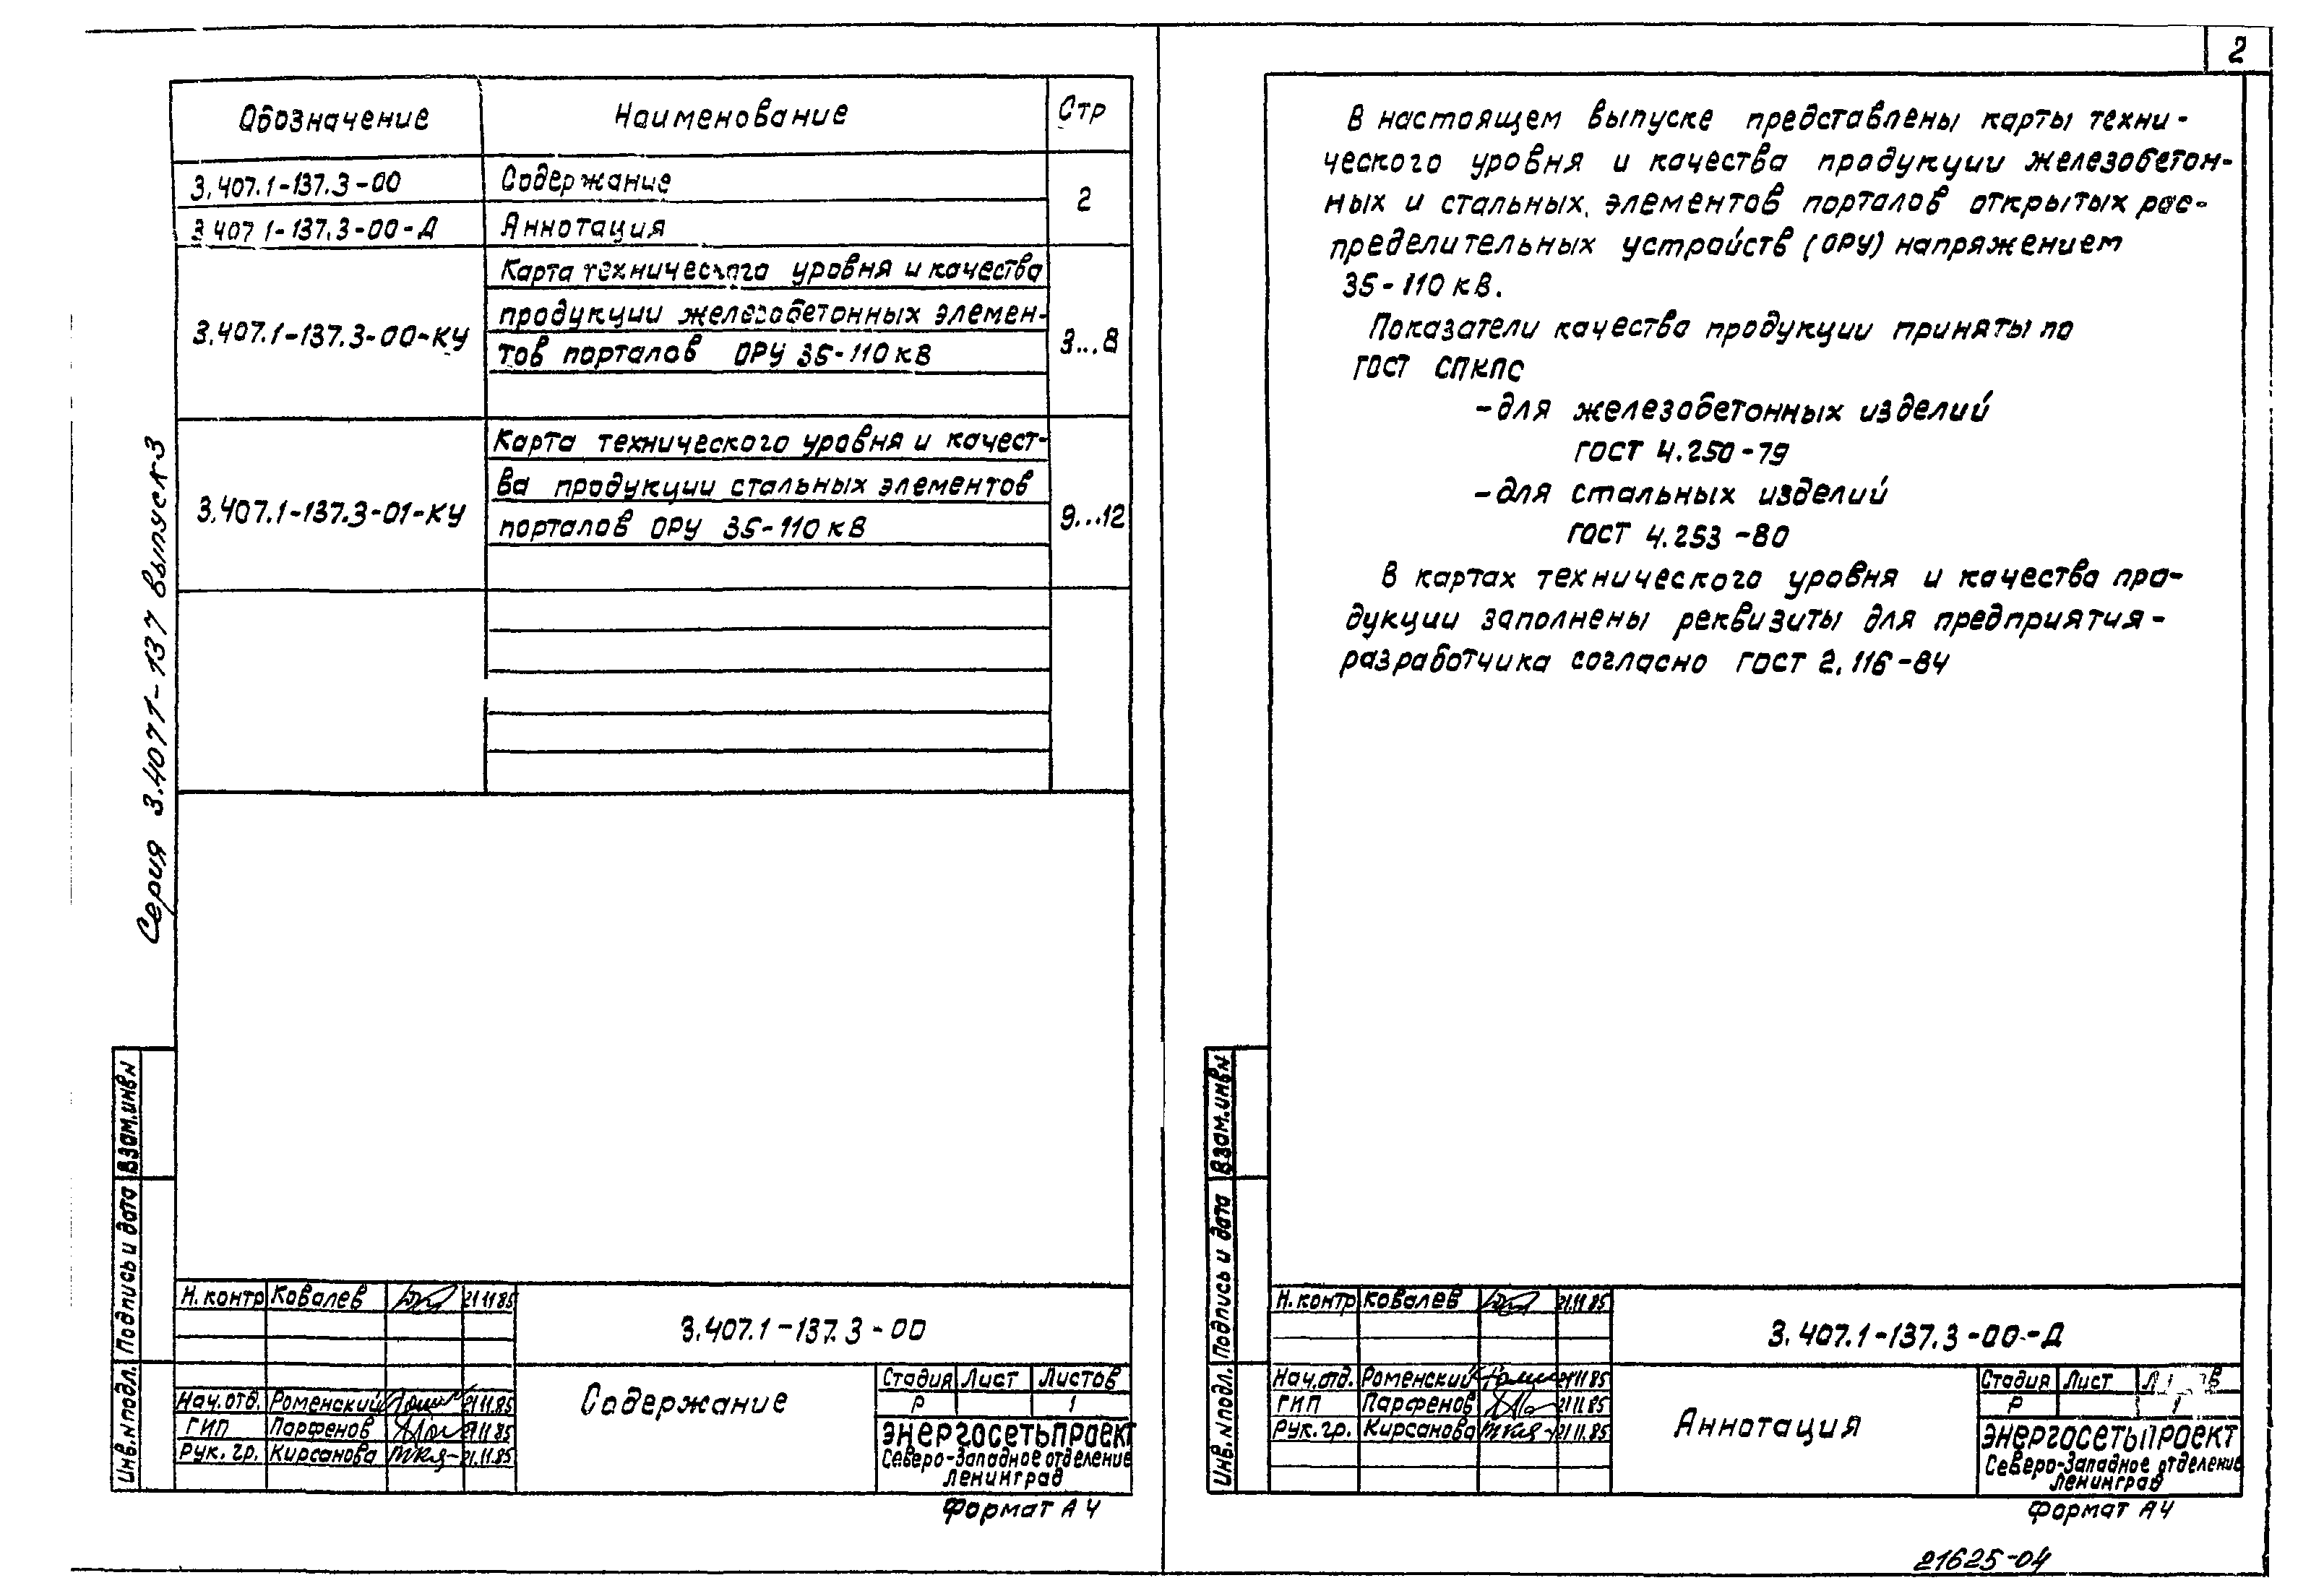 2
Обозначение Наименование Стр
3.407.1-137.3-00 Содержание 2
3.407.1-137.3-00-Д Аннотация
3.407.1-137.3-00-КУ Карта технического уровня и качества
продукции железобетонных элемен-
тов порталов ОРУ 35-110 кВ 3...8
3.407.1-137.3-01-КУ Карта технического уровня и качест-
ва продукции стальных элементов
порталов ОРУ 35-110 кВ 9...12
Серия 3.407.1-137 выпуск 3
Взам.инв.N
Подпись и дата
Инв.N подл.
Н.контр Ковалев 21.11.85
Нач.отд. Роменский 21.11.85
ГИП Парфенов 21.11.85
Рук. гр. Кирсанова 21.11.85
3.407.1-137.3-00
Содержание
Стадия Лист Листов
Р 1
ЭНЕРГОСЕТЬПРОЕКТ
Северо-Западное отделение
Ленинград
Формат А4
В настоящем выпуске представлены карты техни-
ческого уровня и качества продукции железобетон-
ных и стальных, элементов порталов открытых рас-
пределительных устройств (ОРУ) напряжением
35-110 кВ.
Показатели качества продукции приняты по
ГОСТ СПКПС
-для железобетонных изделий
ГОСТ 4.250-79
-для стальных изделий
ГОСТ 4.253-80
В картах технического уровня и качества про-
дукции заполнены реквизиты для предприятия-
разработчика согласно ГОСТ 2.116-84
Взам.инв.N
Подпись и дата
Инв.N подл.
Н.контр Ковалев 21.11.85
Нач.отд. Роменский 21.11.85
ГИП Парфенов 21.11.85
Рук.гр. Кирсанова 21.11.85
3.407.1-137.3-00-Д
Аннотация
Стадия Лист
Р 1
ЭНЕРГОСЕТЬПРОЕКТ
Северо-Западное отделение
Ленинград
Формат А4
21625-04